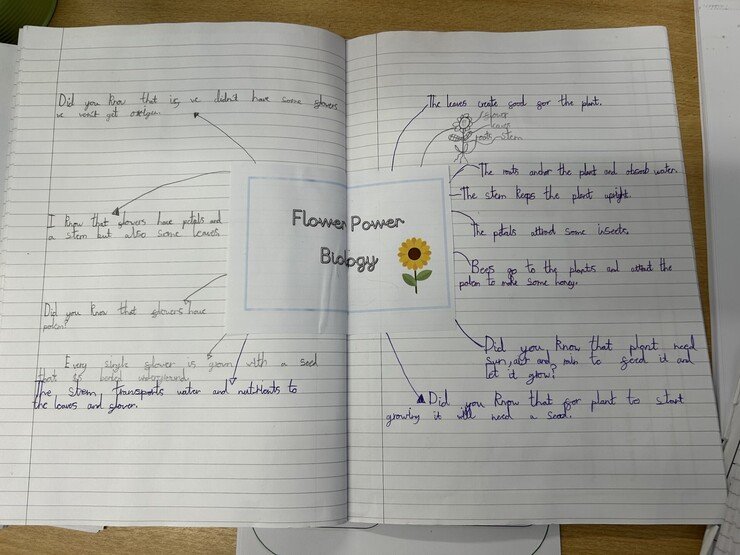 Did you know that if we didn't have some flowers
we won't get oxegen.
I know that flowers have petals and
a stem but also some leaves
Did you know that flowers have
polem?
Every single flower is grown with a seed
that is being underground
The stem transports water and nutrients to
the leaves and flower.
Flower Power
Biology
The leaves create food for the plant.
flower
leaves
roots stem
The roots anchor the plant and absorb water.
The stem keeps the plant upright.
The petals attract some insects.
Bees go to the plants and attract the
polem to make some honey.
Did you know that plant need
sun, air and rain to feed it and
let it grow?
Did you know that for plant to start
growing it will need a seed.